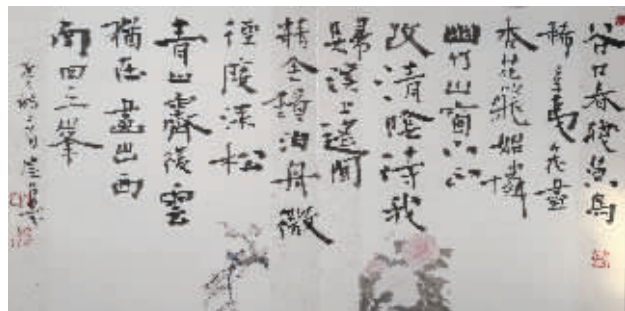 谷口春殘黄鳥
稀辛夷花盡
杏花飛始憐
幽竹山窗下不
改清陰待我
歸溪上遥聞
精舍鐘泊舟微
徑度深松
青山霽後雲
猶在畫出西
南四五峯